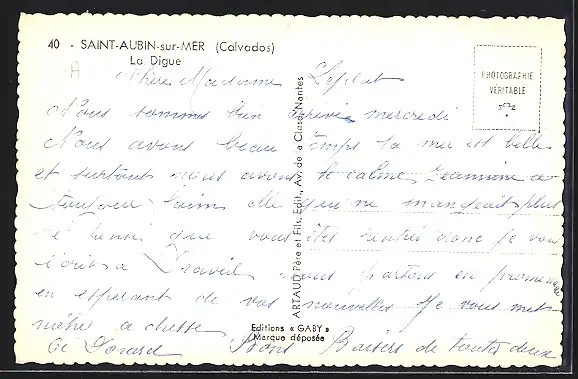 40 - SAINT-AUBIN-sur-MER (Calvados)
La Digue
PHOTOGRAPHIE
VÉRITABLE
ARTAUD Père et Fils, Édit., Av. de la Close, Nantes
Chère Madame
Nous sommes bien arrivé mercredi
Nous avons beau temps la mer est belle
et surtout nous avons le calme Jeannine a
toujour faim elle qui ne mangeait plus
je pense que vous êtes rentré donc je vous
écris a Draveil nous partons en promenade
en espérant de vos nouvelles Je vous
adresse
Bons Baisers de toutes deux
Editions « GABY »
Marque déposée